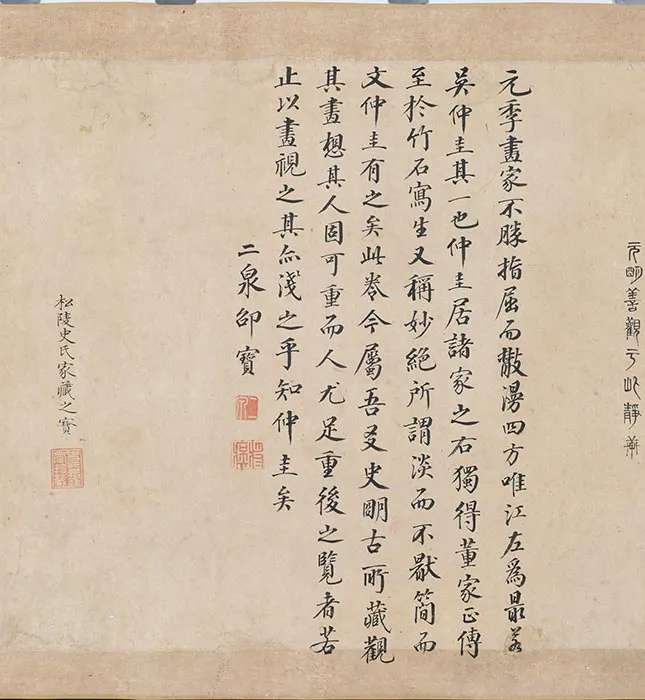 元明善觀于此靜
元季畫家不勝指屈而散漫四方唯江左爲最若
吳仲圭其一也仲圭居諸家之右獨得董家正傳
至於竹石寫生又稱妙絕所謂淡而不厭簡而
文仲圭有之矣此卷今屬吾友史明古所藏觀
其畫想其人固可重而人尤足重後之覽者若
止以畫視之其亦淺之乎知仲圭矣
二泉邵寶
松陵史氏家藏之寶